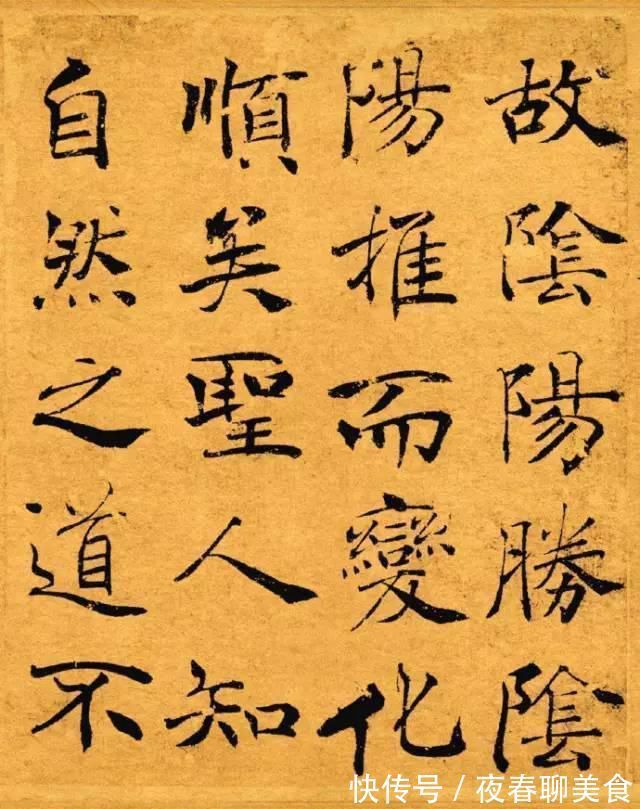 故陰陽勝陰
陽推而變化
順矣聖人知
自然之道不
快传号/夜春聊美食